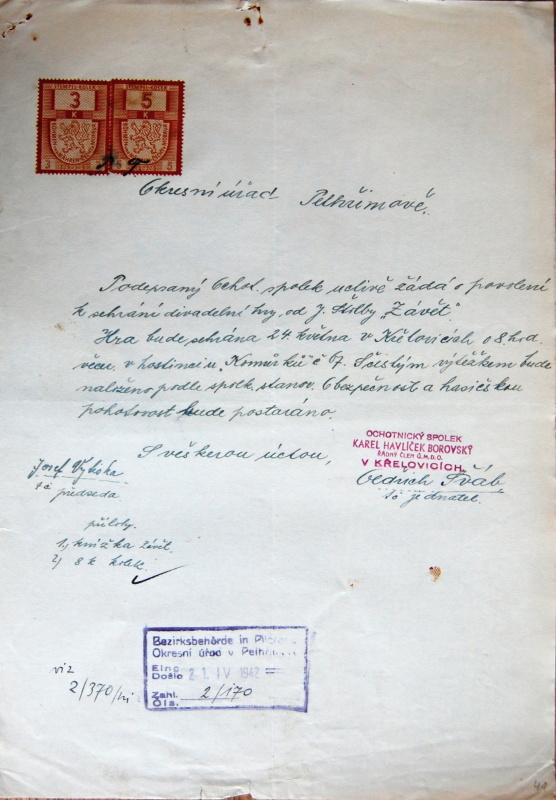 STEMPEL-KOLEK STEMPEL-KOLEK
3 5
K K
3 3 5 5
P. T.
Okresní úřad Pelhřimově.
Podepsaný Ochot. spolek uctivě žádá o povolení
k sehrání divadelní hry, od J. Štolby „Závěť".
Hra bude sehrána 24. května v Křelovicích o 8 hod.
večer v hostinci u „Komůrků" č 67. S čistým výtěžkem bude
naloženo podle spolk. stanov. O bezpečnost a hasičskou
pohotovost bude postaráno.
S veškerou úctou,
OCHOTNICKÝ SPOLEK
KAREL HAVLÍČEK BOROVSKÝ
ŘÁDNÝ ČLEN Ú.M.D.O.
V KŘELOVICÍCH
Josef Vyhska
t č předseda
Oldřich Šváb
t č jednatel.
přílohy.
1) knížka závěť.
2) 8 k kolek.
Bezirksbehörde in
Okresní úřad v
Eing.
Došlo 21. IV 1942
Zahl.
Čís. 2/170
viz
2/370